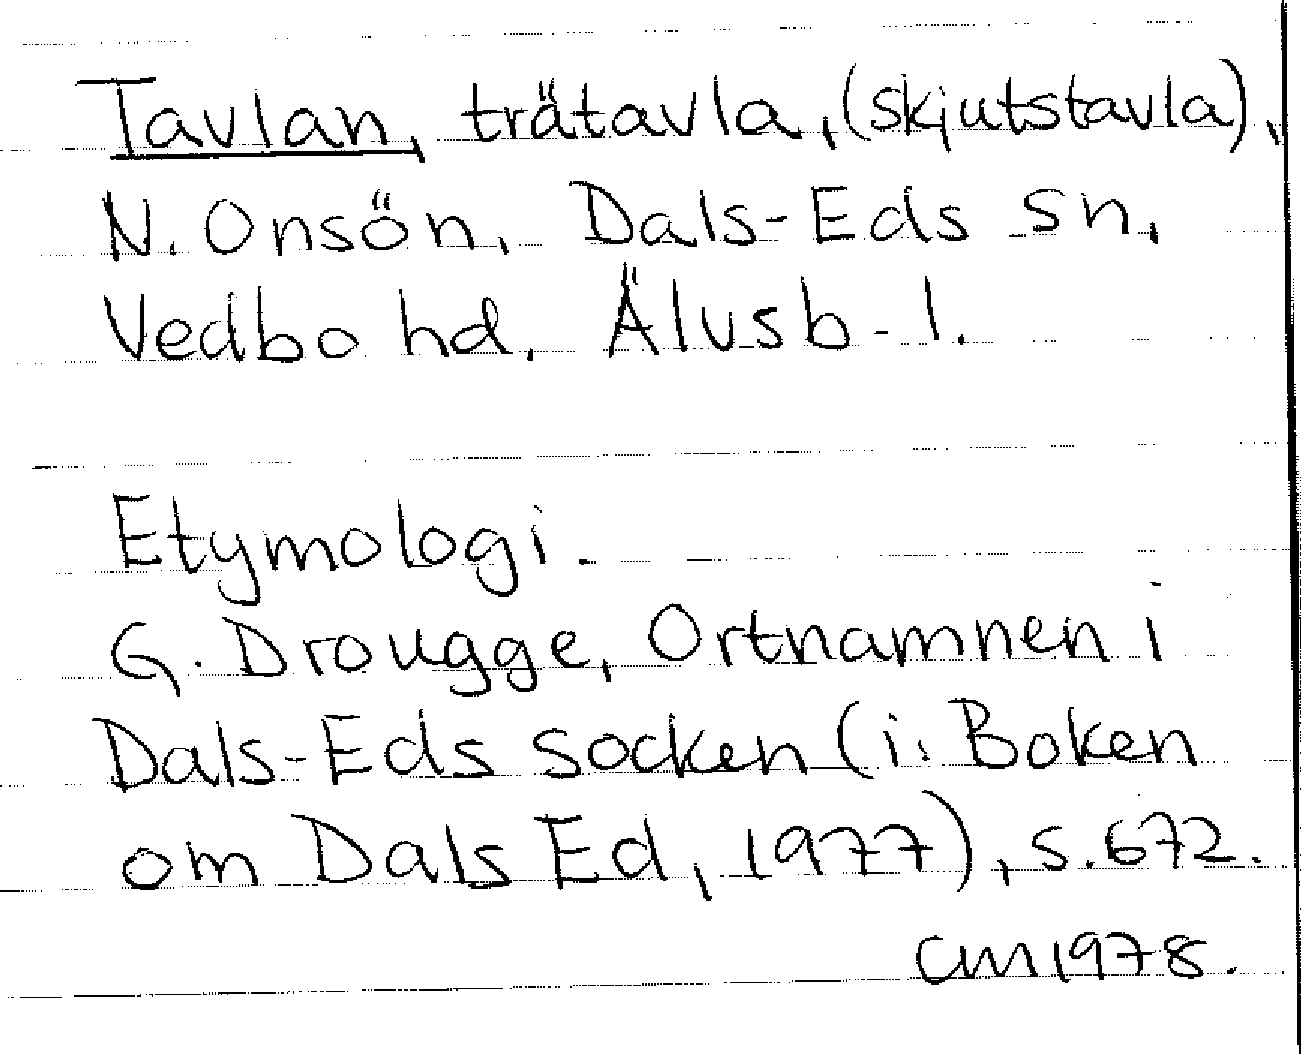 Tavlan, trätavla, (skjutstavla),
N. Onsön, Dals-Eds sn,
Vedbo hd, Älvsb-l.
Etymologi.
G. Drougge, Ortnamnen i
Dals-Eds socken (i: Boken
om Dals Ed, 1977), s. 672.
CM 1978.